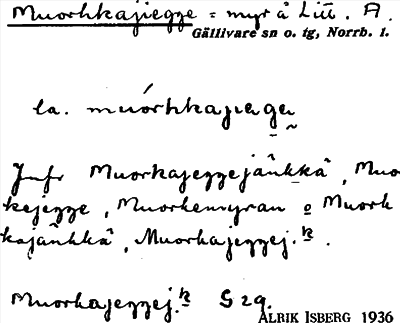 Muorhkajiegge = myr å Litt. A.
Gällivare sn o. tg, Norrb. l.
la. muórhkajiegge
Jmfr Muorkajeggejåhkkå, Muor
kejegge, Muorkemyran o Muork
kajåhkkå, Muorkajeggej.
Muorkajeggej. S 29.
ALRIK ISBERG 1936